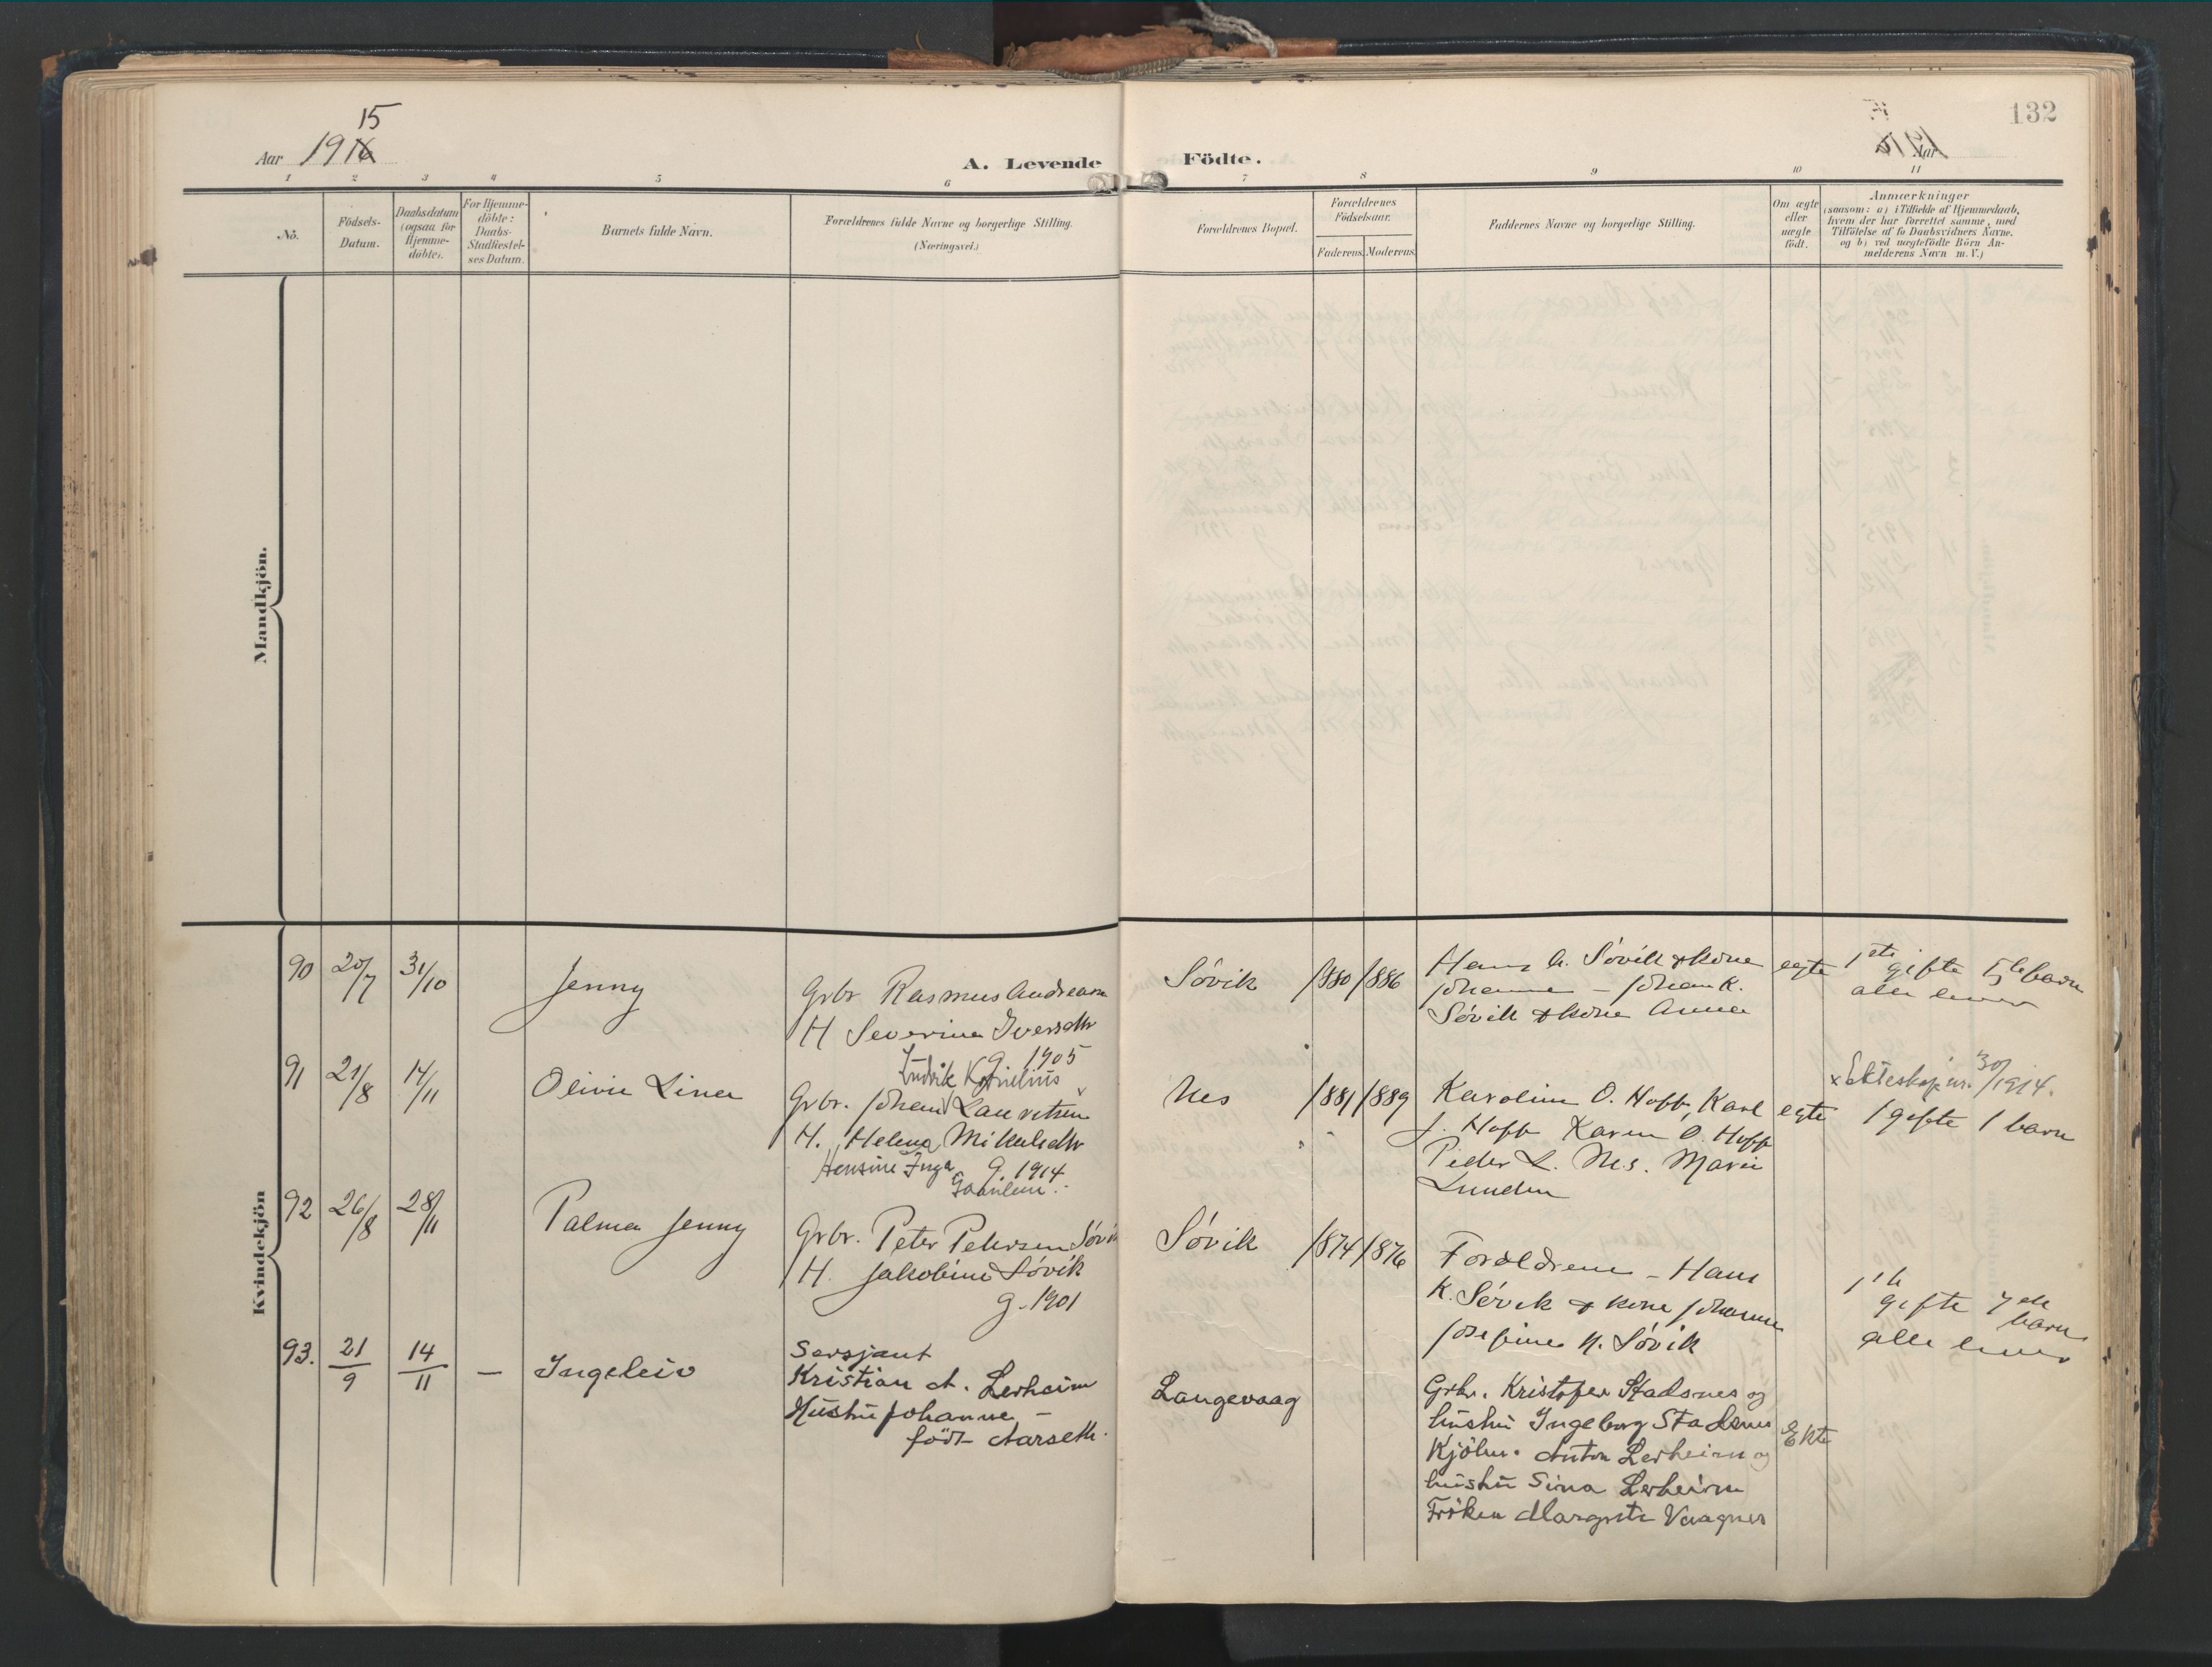 15
Aar 1916
A. Levende Födte.
132
Aar
1 2 3 4 5 6 7 8 9 10 11
No.
Födsels-Datum.
Daabsdatum (ogsaa for Hjemme-döbte).
For Hjemme-döbte: Daabs-Stadfæstel-ses Datum.
Barnets fulde Navn.
Forældrenes fulde Navne og borgerlige Stilling.
(Næringsvei.)
Forældrenes Bopæl.
Forældrenes Födselsaar.
Faderens. Moderens.
Faddernes Navne og borgerlige Stilling.
Om ægte eller uægte födt.
Anmærkninger
(saasom: a) i Tilfælde af Hjemmedaab,
hvem der har forrettet samme, med
Tilföielse af to Daabsvidners Navne,
og b) ved uægtefödte Börn An-
melderens Navn m. V.)
Mandkjön.
Kvindekjön
90 20/7 31/10 Jenny
Grbr Rasmus Andreasen
H Severine Iversdtr
g. 1905
Søvik 1880 1886
Hans A. Søvik & kone
Johanne - Johan K.
Søvik & kone Anna
egte
1ste gifte 5te barn
alle lever
91 21/8 14/11 Olivie Lina
Ludvik Kornelius
Grbr. Johan Lauritsen
H. Helena Mikalsdtr
Hensine Inga g. 1914
Nes 1881 1889
Karoline O. Hoff, Karl
J. Hoff Karen O. Hoff
Peder L. Nes. Marie
Lunden
egte
x Ekteskap nr. 30/1914.
1 gifte 1 barn
92 26/8 28/11 Palma Jenny
Grbr. Peter Petersen Søvik
H. Jakobine Søvik
g. 1901
Søvik 1874 1876
Forældrene - Hans
K. Søvik & kone Johanne
Josefine N. Søvik
1ste gifte 7de barn
alle lever
93. 21/9 14/11 — Ingeleiv
Sersjant
Kristian A. Lerheim
Hustru Johanne -
född Aarseth.
Langevaag
Grbr. Kristofer Stadsnes og
hustru Ingeborg Stadsnes
Kjöbm. Anton Lerheim og
hustru Sina Lerheim
Fröken Margrete Vaagnes
Ekte